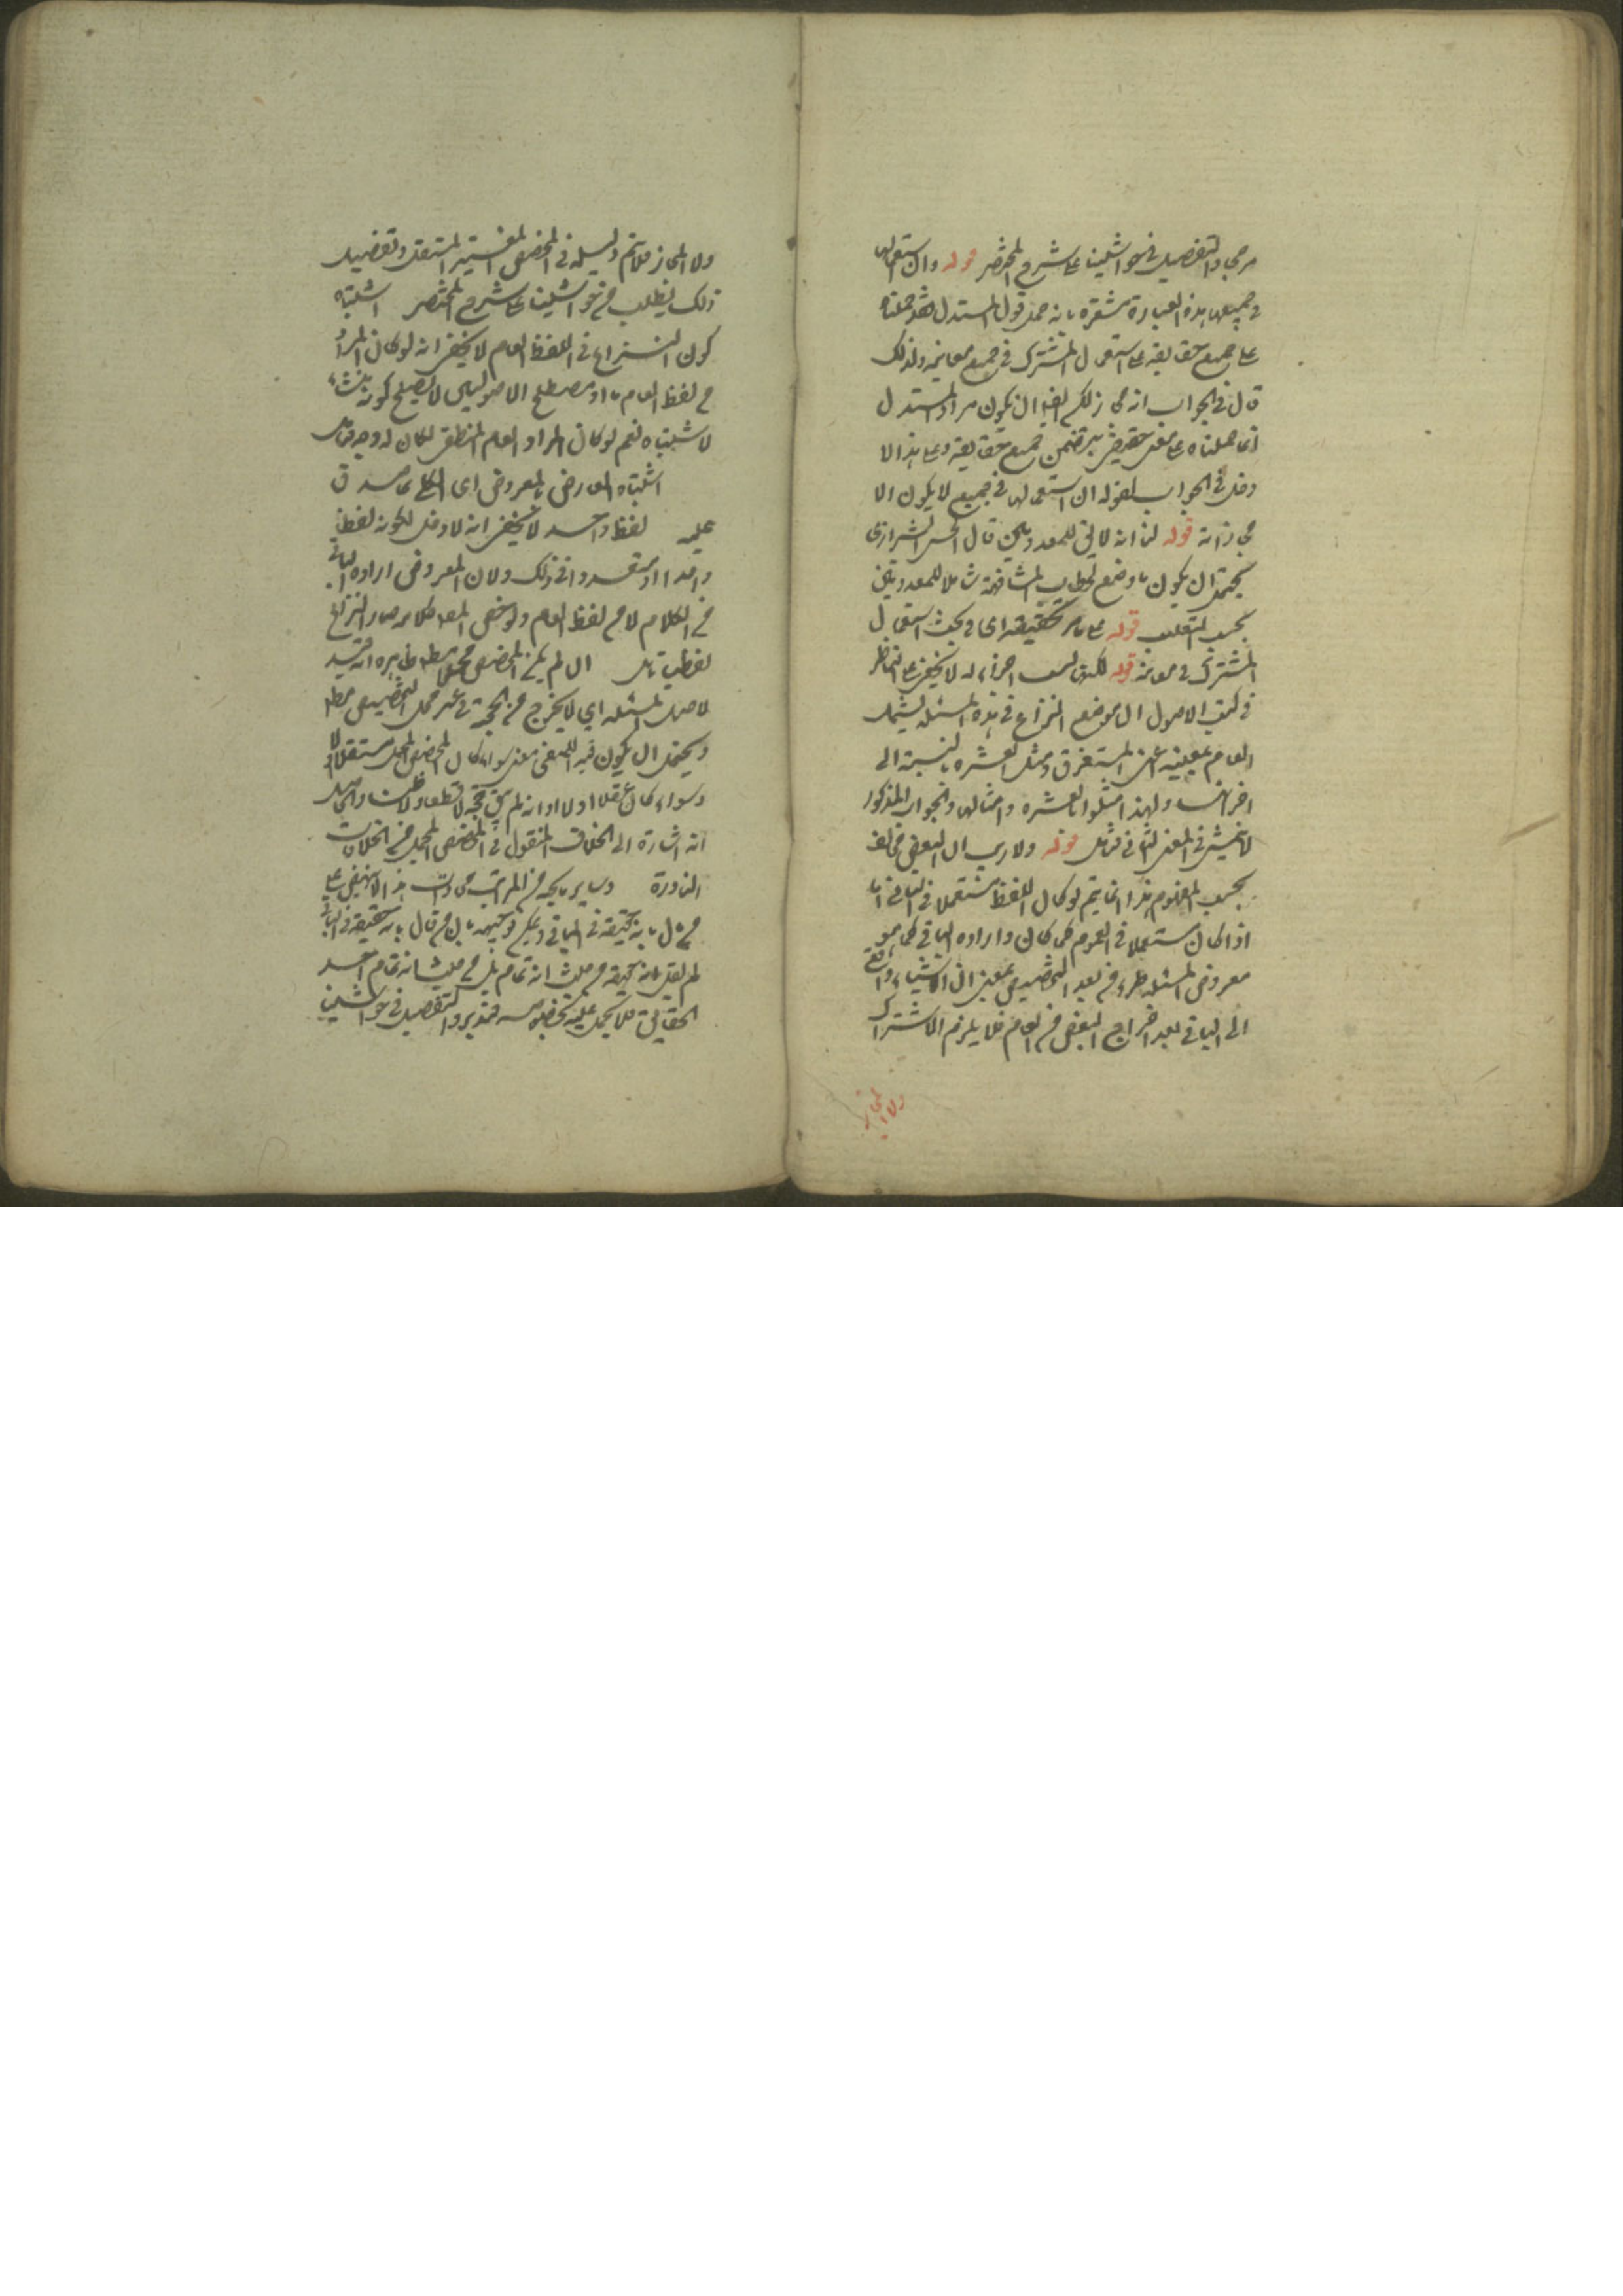 مرجح والتفصيل في حواشينا على شرح المختصر قوله وان استعمالها
في جميعها هذه العبارة مشعرة بانه حمل قول المستدل فقد حملناه
على جميع حقايقه على استعمال المشترك في جميع معانيه ولذلك
قال في الجواب انه مجاز لكم ايضا ان يكون مراد المستدل
انما حملناه على معنى حقيقي يتضمن جميع حقايقه وعلى هذا لا
دخل في الجواب لقوله ان استعمالها في جميع لا يكون الا
مجازاته قوله لنا انه لا يق للمعدومين قال المحشي الشيرازي
يحتمل ان يكون ما وضع لخطاب المشافهة شاملا للمعدومين
بحسب التغليب قوله على ما مر تحقيقه اي في بحث استعمال
المشترك في معانيه قوله لكنها ليست اجزاء له لا يخفى على الناظر
في كتب الاصول ان موضع النزاع في هذه المسئلة يشمل
العام بمعنى المستغرق ومثل العشرة بالنسبة الى
اجزائها ولهذا مثلوا بالعشرة وامثالها والجواب المذكور
لا يتمشى في المعنى الثاني فتأمل قوله ولا ريب ان البعض مخالف
بحسب المفهوم هذا انما يتم لو كان اللفظ مستعملا في الباقي اما
اذا كان مستعملا في العموم كما كان وارادة الباقي كما هو
معروض المسئلة طرء من بعد التخصيص بمعنى ان الاسناد واقع
الى الباقي بعد اخراج البعض من العام فلا يلزم الاشتراك
ولا المجاز
ولا المجاز فلا يتم دليله في المخصص الغير المستقل وتفصيل
ذلك يطلب من حواشينا على شرح المختصر اشتباه
كون النزاع في اللفظ العام لا يخفى انه لو كان المراد
من لفظ العام ما هو مصطلح الاصوليين لا يصلح كونه منشاء
لاشتباه نعم لو كان المراد العام المنطقي لكان له وجه فتأمل
اشتباه العارض بالمعروض اي الكلي بما صدق
عليه لفظ واحد لا يخفى انه لا دخل لكونه لفظا
واحدا او متعددا في ذلك ولان المعروض ارادة الباقي
من الكلام لا من لفظ العام ولو خص المص كلامه صار النزاع
لفظيا تأمل ان لم يكن المخصص مجملا مطلقا ظاهره انه قيد
لاصل المسئلة اي لا يخرج من الحجية في غير محل التخصيص مطلقا
ويحتمل ان يكون قيد للمنفي يعني سواء كان المخصص المجمل مستقلا او لا
وسواء كان عقلا او لا او انه لم يبق حجة لا قطعا ولا ظنا والحاصل
انه اشارة الى الخلاف المنقول في المخصص المجمل من الخلافات
النادرة وساير ما يحيه من المراتب مجازات هذا لا ينهض على
من قال بانه حقيقة في الباقي ويمكن توجيهه بان من قال بانه حقيقة في الباقي
لم يقل بانه حقيقة من حيث انه تمام بل من حيث انه تمام احد
الحقايق فلا يحمل عليه بخصوصه فتدبر والتفصيل في حواشينا